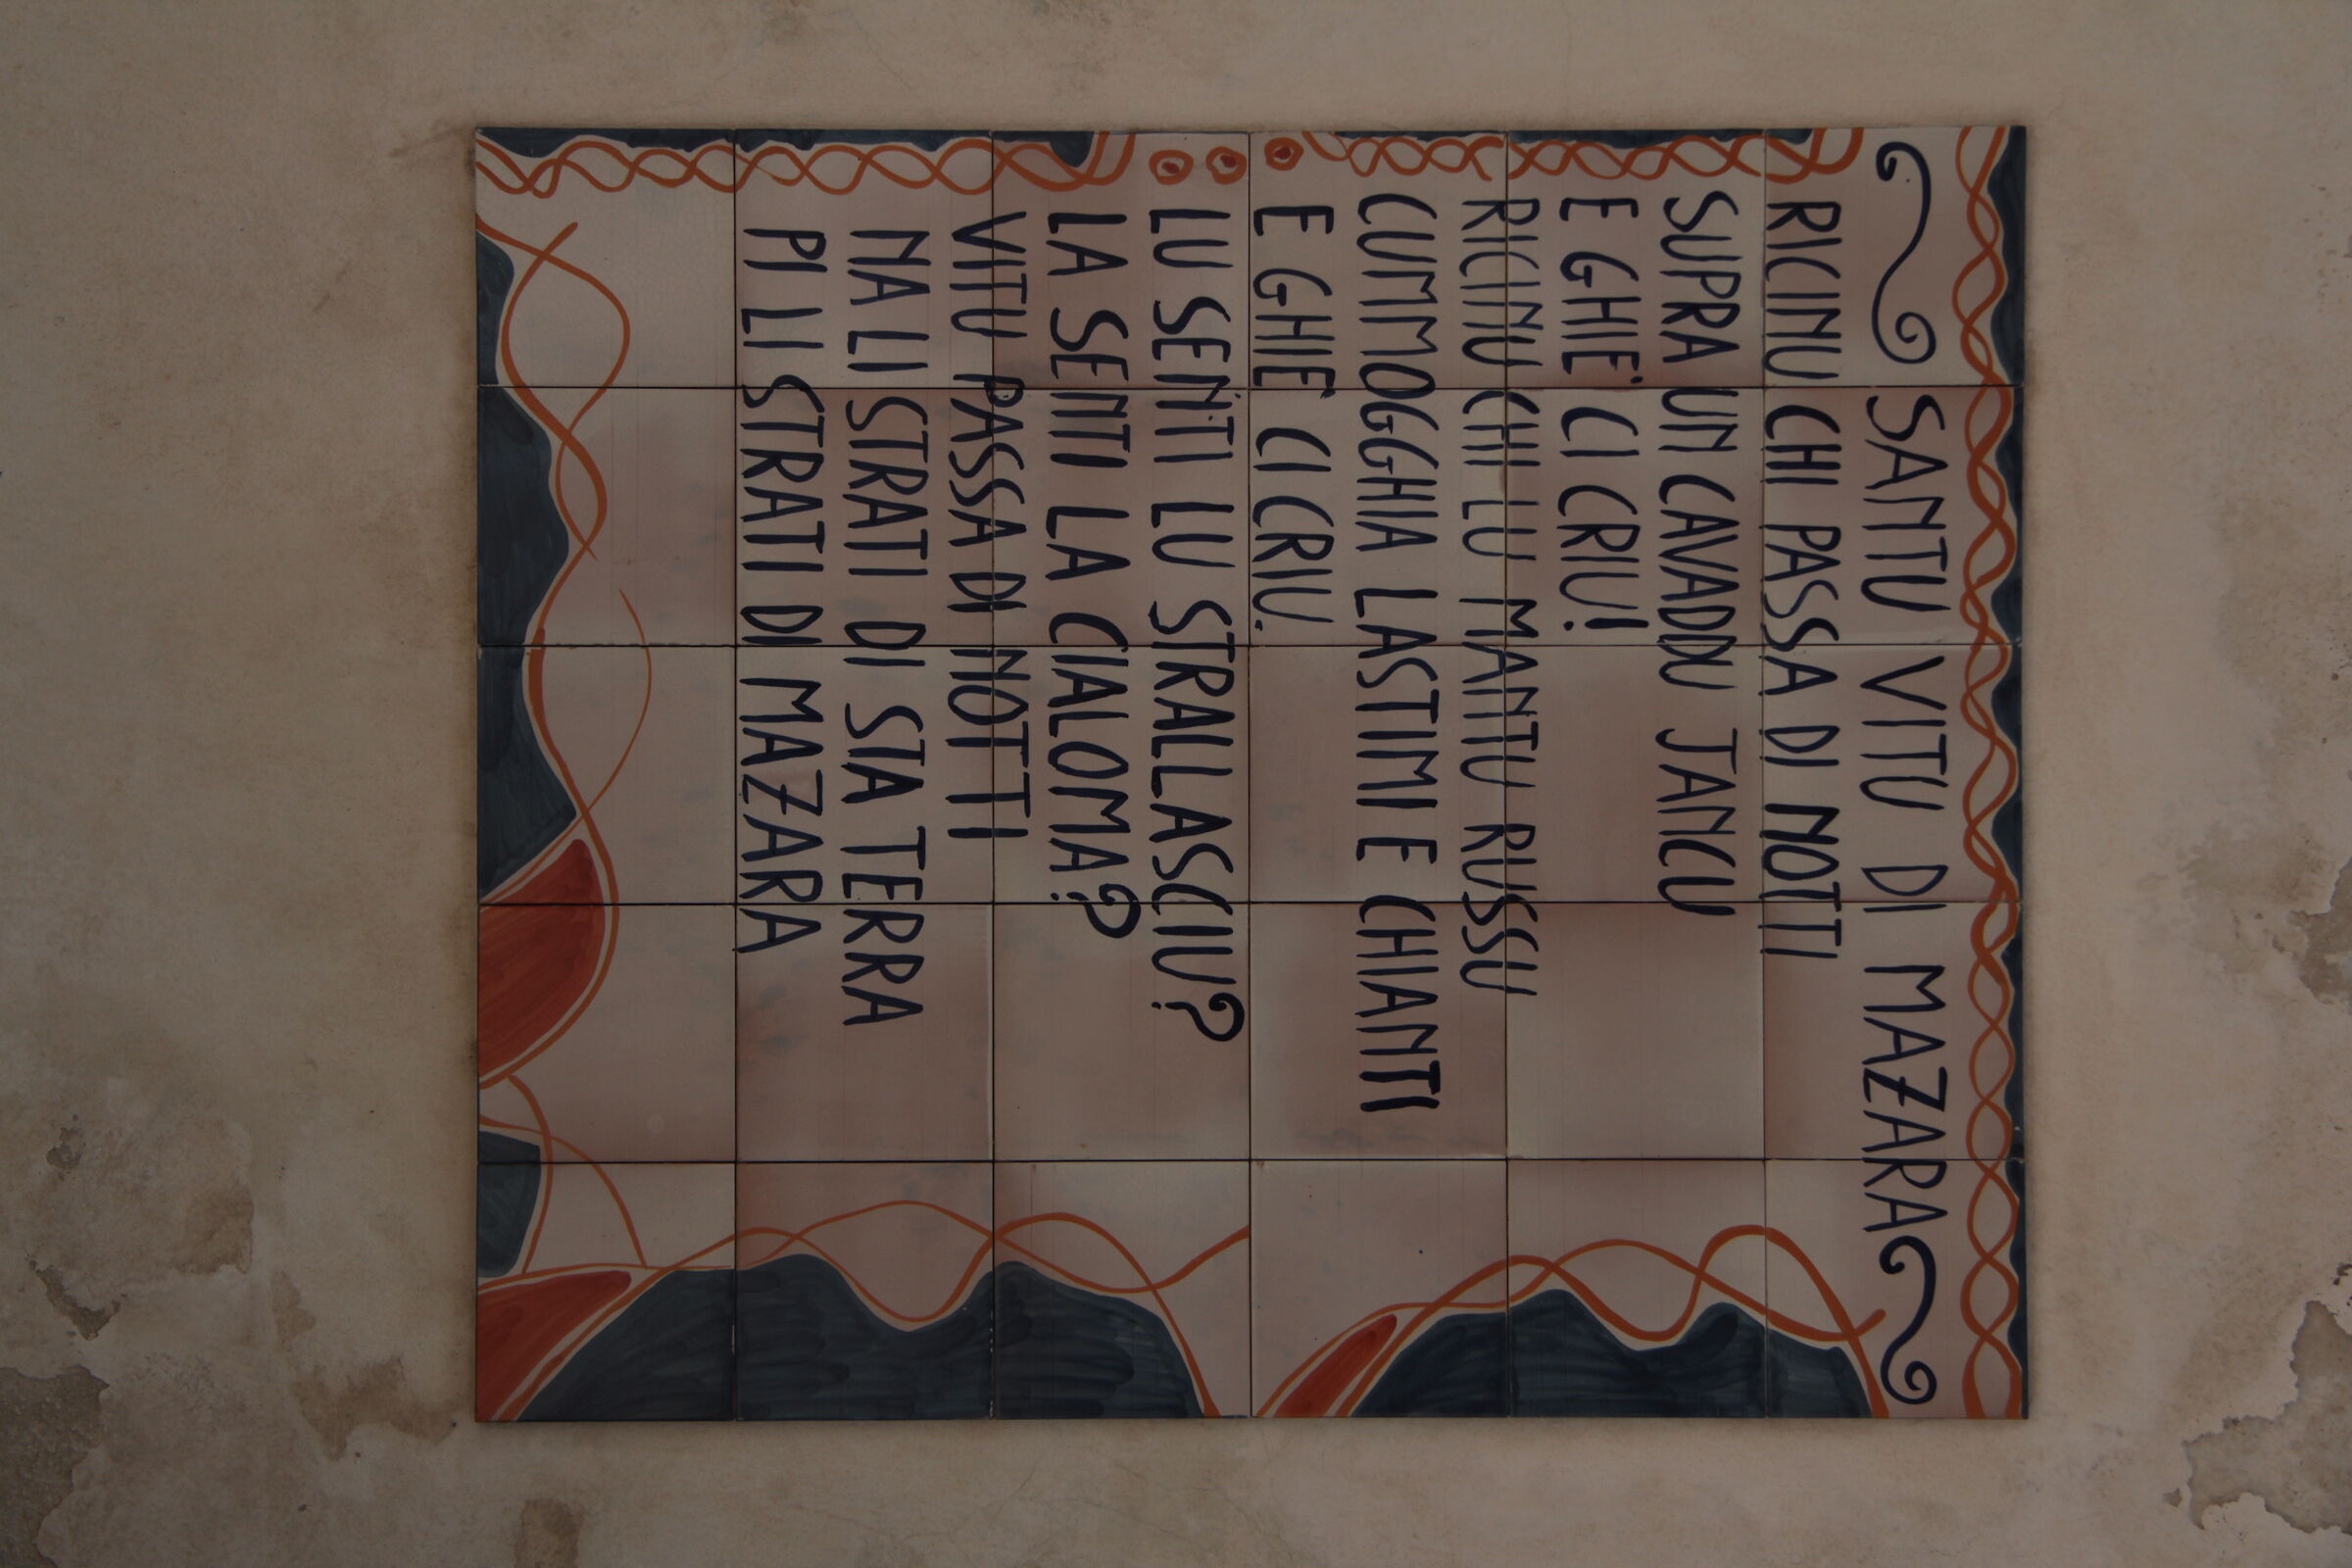 SANTU VITU DI MAZARA
RICINU CHI PASSA DI NOTTI
SUPRA UN CAVADDU JANCU
E GHIE' CI CRIU!
RICINU CHI LU MANTU RUSSU
CUMMOGGHIA LASTIMI E CHIANTI
E GHIE' CI CRIU.
LU SENTI LU STRALLASCIU?
LA SENTI LA CIALOMA?
VITU PASSA DI NOTTI
NA LI STRATI DI STA TERRA
PI LI STRATI DI MAZARA